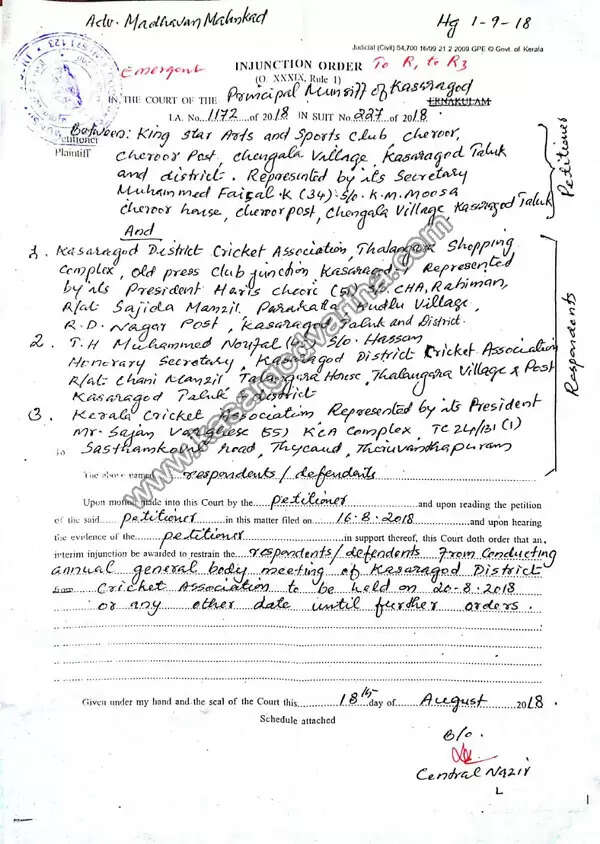 Adv. Madhavan Malankad
Hg 1-9-18
Judicial (Civil) 54,700 16/09 21 2 2009 GPE © Govt. of Kerala
Emergent
INJUNCTION ORDER To R1 to R3
(O XXXIX, Rule 1)
IN THE COURT OF THE Principal Munsiff of Kasaragod
ERNAKULAM
I.A. No. 1172 of 2018 IN SUIT No. 227 of 2018.
Between: King star Arts and Sports Club cheroor,
Petitioner
Plaintiff
cheroor Post, chengala village, Kasaragod Taluk
and district. Represented by its Secretary
Muhammed Faisal.K (34) S/o. K.M. Moosa
cheroor house, cheroor post, Chengala Village, Kasaragod Taluk
Petitioner
And
1. Kasaragod District Cricket Association, Thalangara Shopping
complex, old press club junction Kasaragod, Represented
by its President Haris cheori (51) S/o. CHA, Rahiman,
R/at Sajida Manzil, Parakatta Kudlu Village,
R.D. Nagar Post, Kasaragod Taluk and District.
2. T.H Muhammed Noufal S/o. Hassan
Honorary Secretary, Kasaragod District Cricket Association
R/at Chani Manzil Talangara House, Thalangara Village & Post
Kasaragod Taluk & district
3. Kerala Cricket Association, Represented by its President
Mr. Sajan Varghese 55) KCA Complex, TC 24/131 (1)
To Sasthamkovil road, Thycaud, Thiruvanthapuram
Respondents
The above named respondents/defendants
Upon motion made into this Court by the petitioner and upon reading the petition
of the said petitioner in this matter filed on 16-8-2018 and upon hearing
the evidence of the petitioner in support thereof, this Court doth order that an
interim injunction be awarded to restrain the respondents/defendents From conducting
annual general body meeting of Kasaragod District
from Cricket Association to be held on 20-8-2018
or any other date until further orders.
Given under my hand and the seal of the Court this 18th day of August 2018
Schedule attached
B/o.
Central Nazir
www.kasargodvartha.com